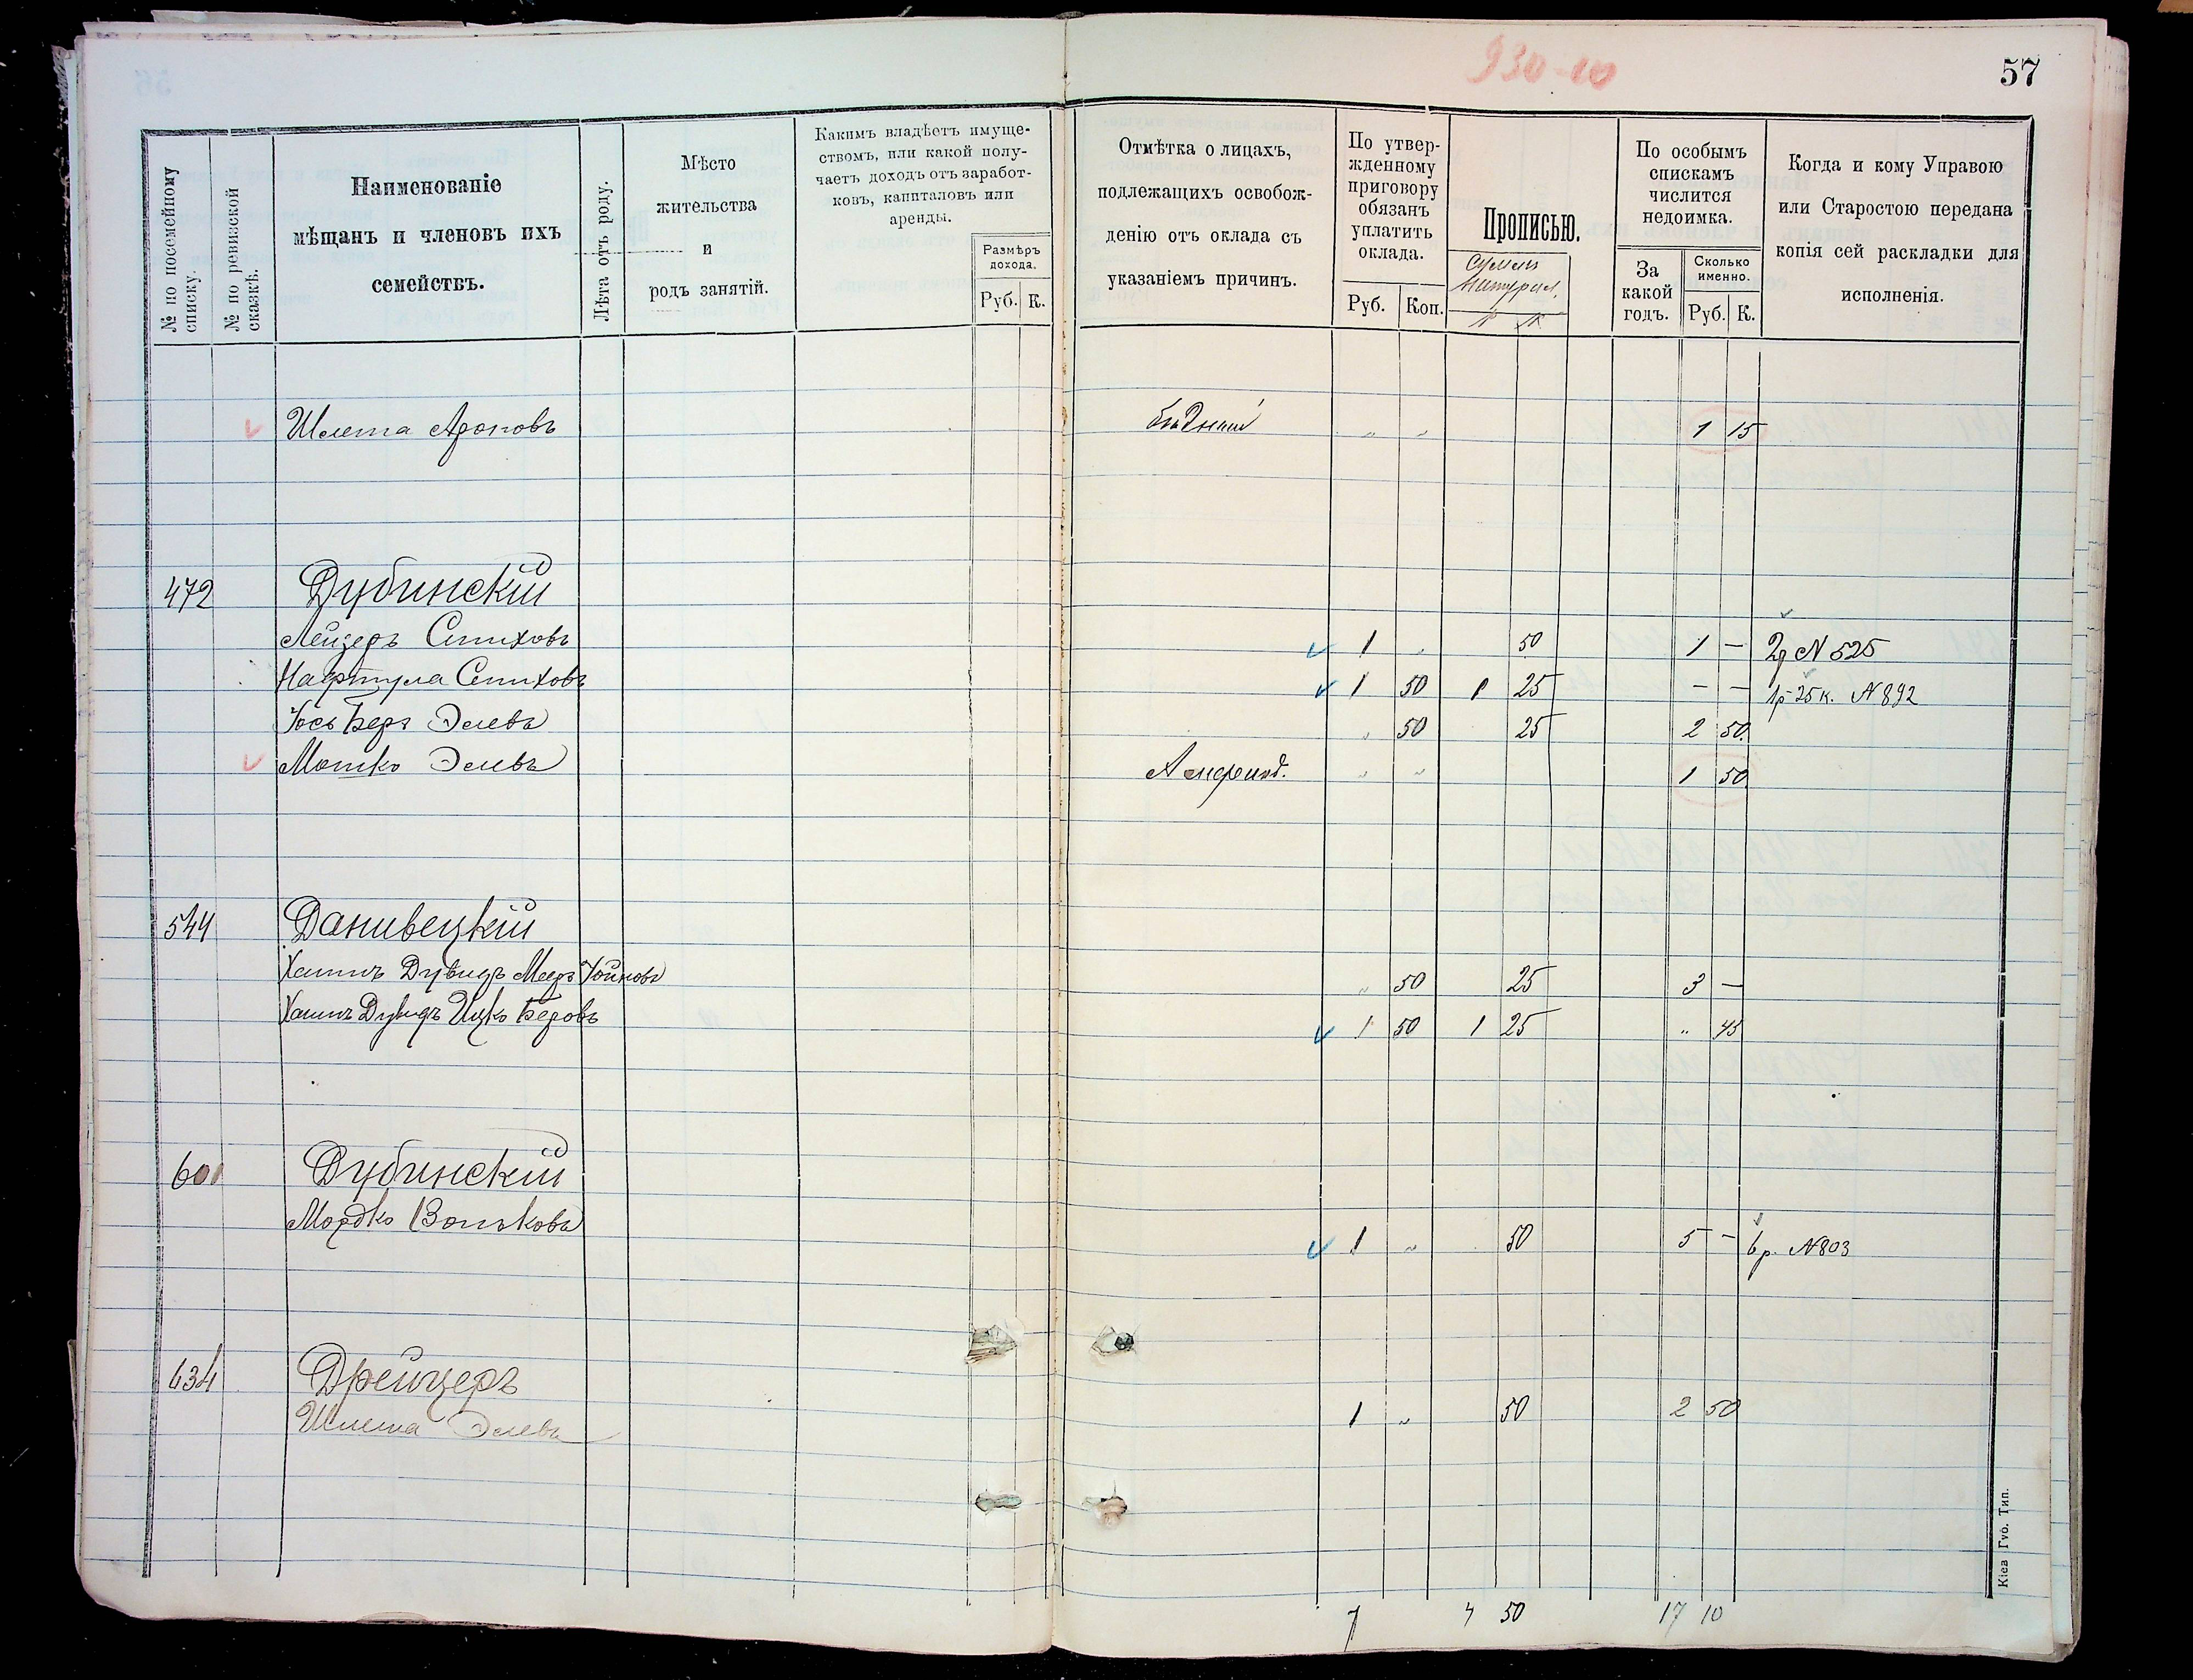 930-10
57
№ по посемейному списку.
№ по ревизской сказкѣ.
Наименованіе
мѣщанъ и членовъ ихъ
семействъ.
Лѣта отъ роду.
Мѣсто
жительства
и
родъ занятій.
Какимъ владѣетъ имуще-
ствомъ, или какой полу-
чаетъ доходъ отъ заработ-
ковъ, капиталовъ или
аренды.
Размѣръ
дохода.
Руб. К.
Отмѣтка о лицахъ,
подлежащихъ освобож-
денію отъ оклада съ
указаніемъ причинъ.
По утвер-
жденному
приговору
обязанъ
уплатить
оклада.
Руб. Коп.
Прописью.
По особымъ
спискамъ
числится
недоимка.
За
какой
годъ.
Сколько
именно.
Руб. К.
Когда и кому Управою
или Старостою передана
копія сей раскладки для
исполненія.
Шлема Ароновъ бѣдный " " 1 15
472 Дубинскій
Лейзеръ Сты­ховъ 1 " 50 1 — 2р N 525
Нафтула 1 50 1 25 — — 1р 25к. N 892
Іось Беръ Элевъ " 50 25 2 50
Мошко Элевъ " " 1 50
544 Данивецкій
Хаимъ Дувидъ Меер Хоймовъ " 50 25 3 —
Хаимъ Дувидъ Ицко Беровъ 1 50 1 25 " 45
601 Дубинскій
Мордко Вольковъ 1 " 50 5 — 6р. N 803
634 Дрейцеръ
Шлема Элевъ 1 " 50 2 50
7 4 50 17 10
Кіев Губ. Тип.